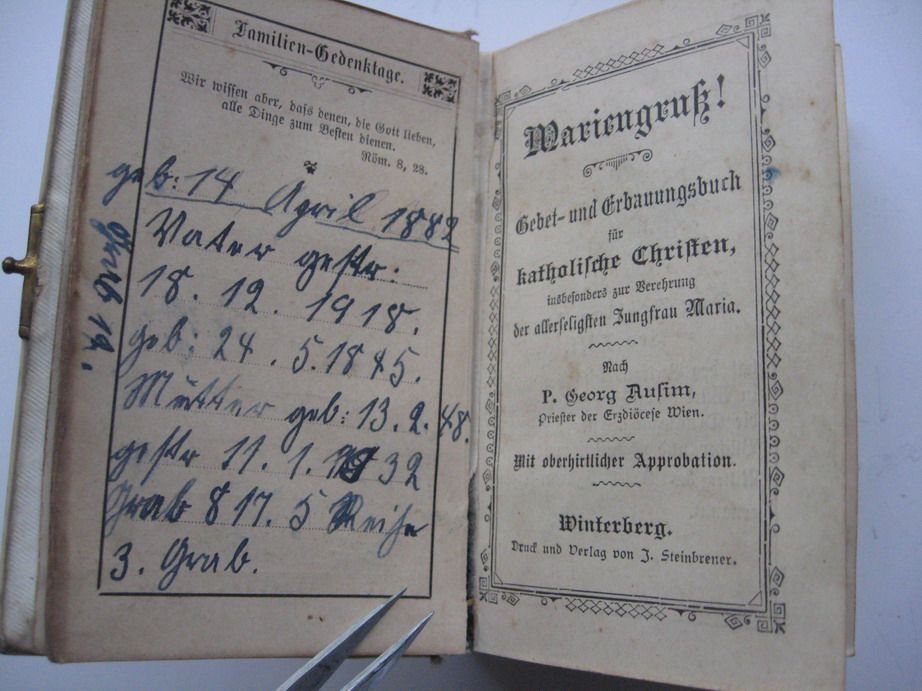 Familien-Gedenktage.
Wir wissen aber, dass denen, die Gott lieben,
alle Dinge zum Besten dienen.
Röm. 8, 28.
geb: 14 April 1882
Vater gestr.
18. 12. 1918.
geb: 24. 5. 1845.
Mutter geb: 13. 2. 48.
gestr 11. 1. 1932
Grab 8 17. 5 Reihe
3. Grab.
Grab 19.
Mariengruß!
Gebet- und Erbauungsbuch
für
katholische Christen,
insbesonders zur Verehrung
der allerseligsten Jungfrau Maria.
Nach
P. Georg Ausim,
Priester der Erzdiöcese Wien.
Mit oberhirtlicher Approbation.
Winterberg.
Druck und Verlag von J. Steinbrener.